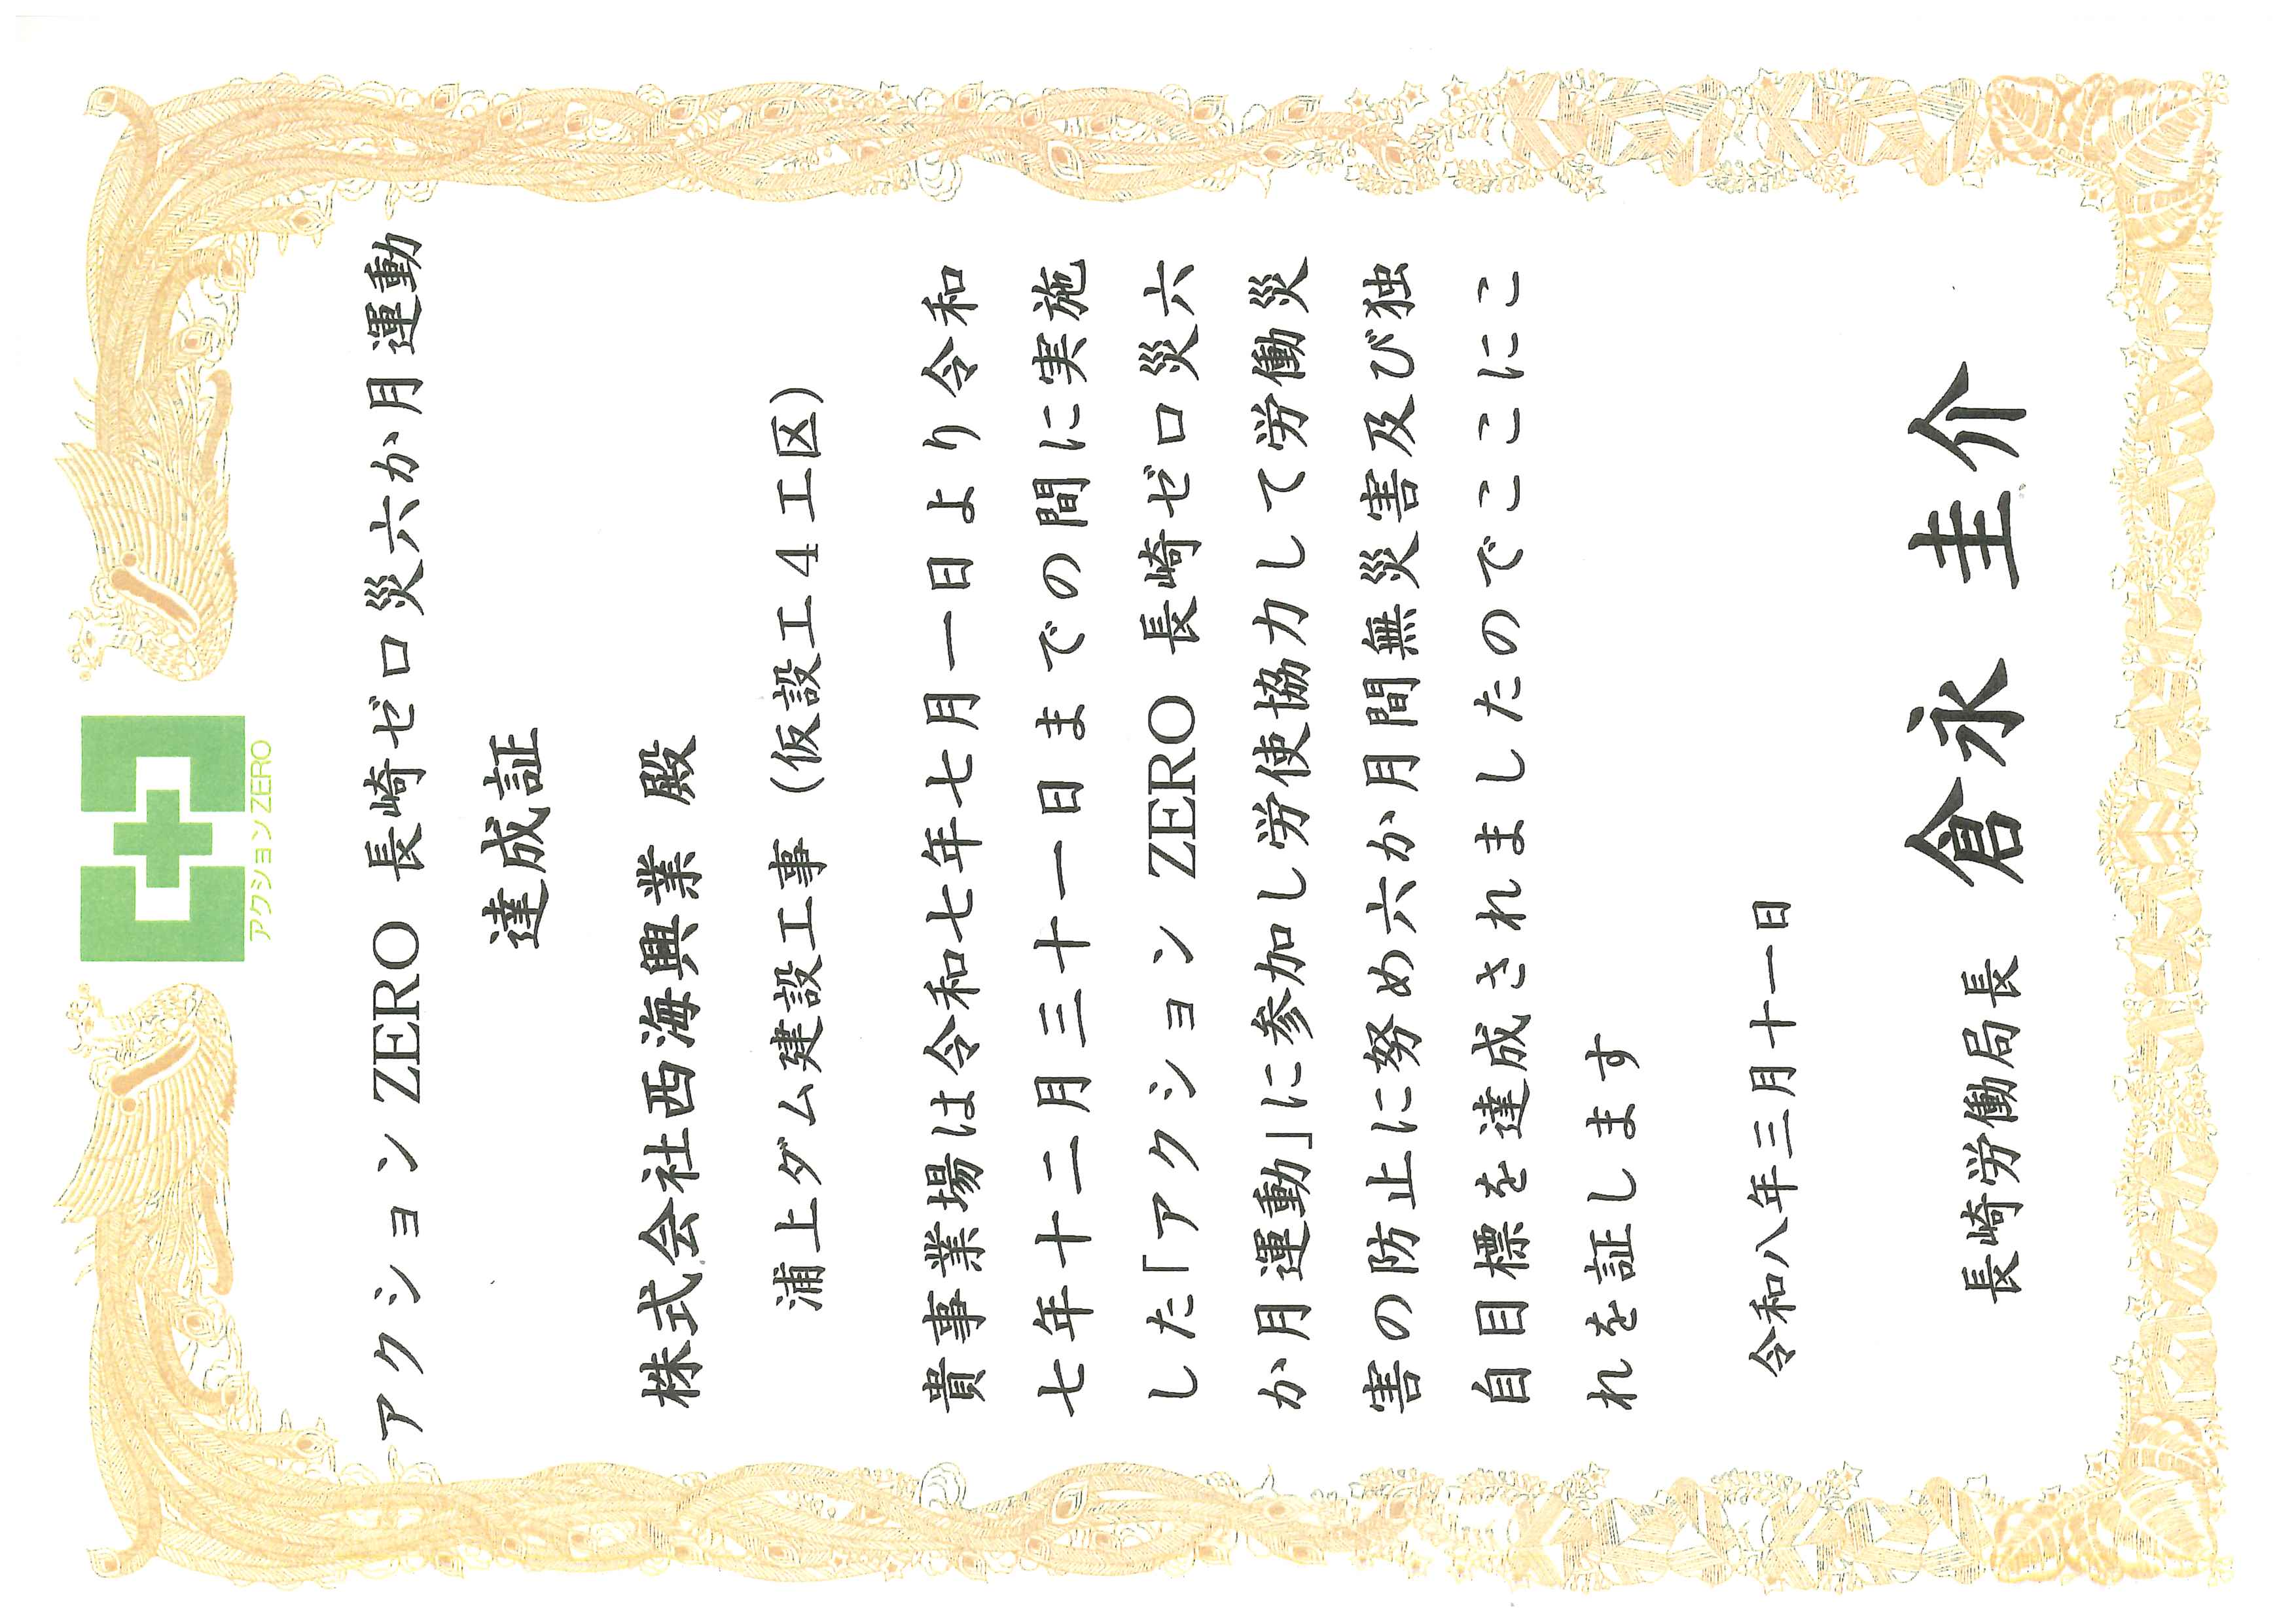 アクションZERO
アクション ZERO 長崎ゼロ災六か月運動
達成証
株式会社西海興業 殿
浦上ダム建設工事（仮設工4工区）
貴事業場は令和七年七月一日より令和
七年十二月三十一日までの間に実施
した「アクション ZERO 長崎ゼロ災六
か月運動」に参加し労使協力して労働災
害の防止に努め六か月間無災害及び独
自目標を達成されましたのでここにこ
れを証します
令和八年三月十一日
長崎労働局長 倉永圭介